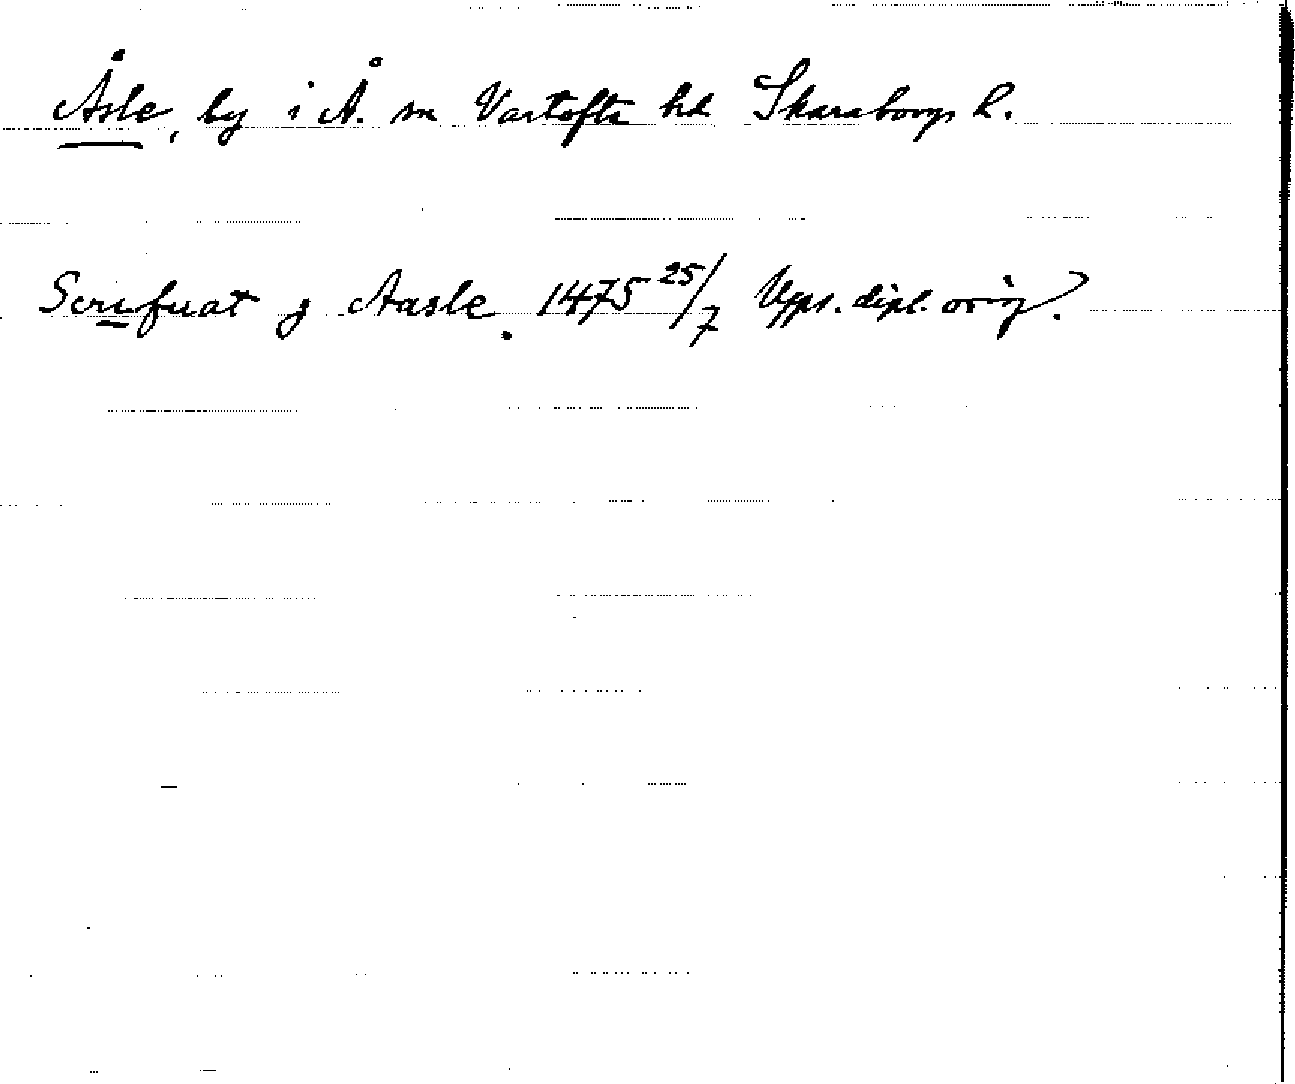 Åsle, by i Å. sn Vartofta hd Skaraborgs l.
Scrifuat j Aasle. 1475 25/7 Upps. dipl. orig.